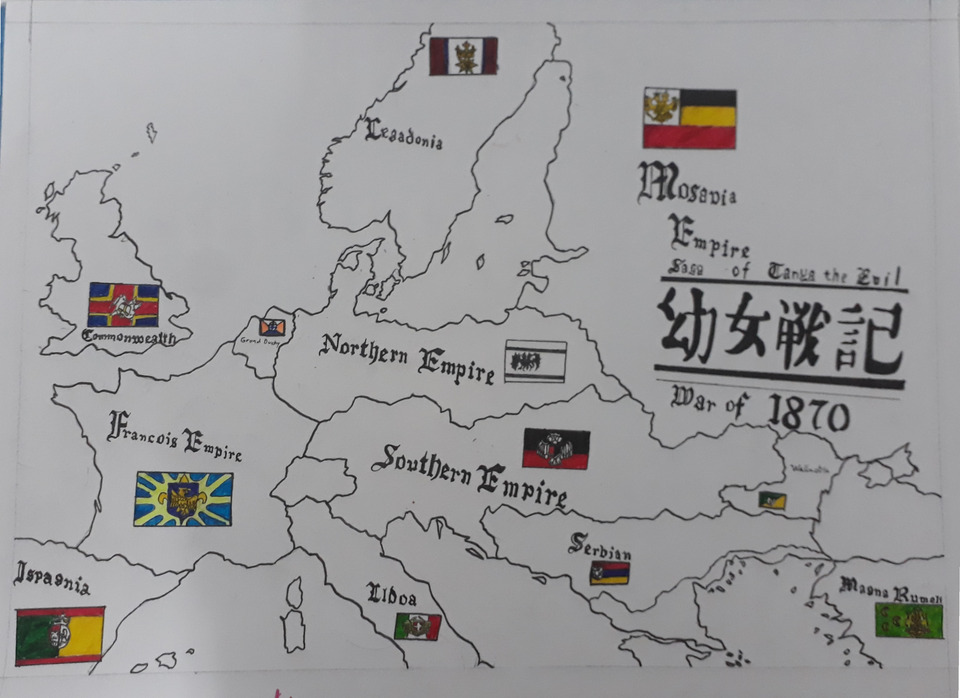 Legadonia
Mosavia
Empire
Saga of Tanya the Evil
幼女戦記
War of 1870
Commonwealth
Grand Duchy
Northern Empire
Francois Empire
Southern Empire
Serbian
Ispagnia
Ildoa
Magna Rumeli